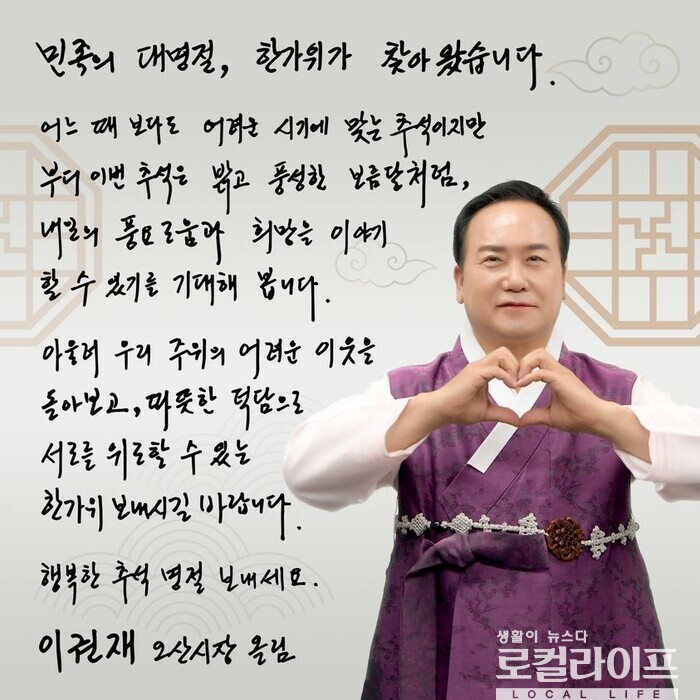 민족의 대명절, 한가위가 찾아 왔습니다.
어느 때 보다도 어려운 시기에 맞는 추석이지만
부디 이번 추석은 밝고 풍성한 보름달처럼,
내일의 풍요로움과 희망을 이야기
할 수 있기를 기대해 봅니다.
아울러 우리 주위의 어려운 이웃을
돌아보고, 따뜻한 덕담으로
서로를 위로할 수 있는
한가위 보내시길 바랍니다.
행복한 추석 명절 보내세요.
이권재 오산시장 올림
생활이 뉴스다
로컬라이프
LOCAL LIFE